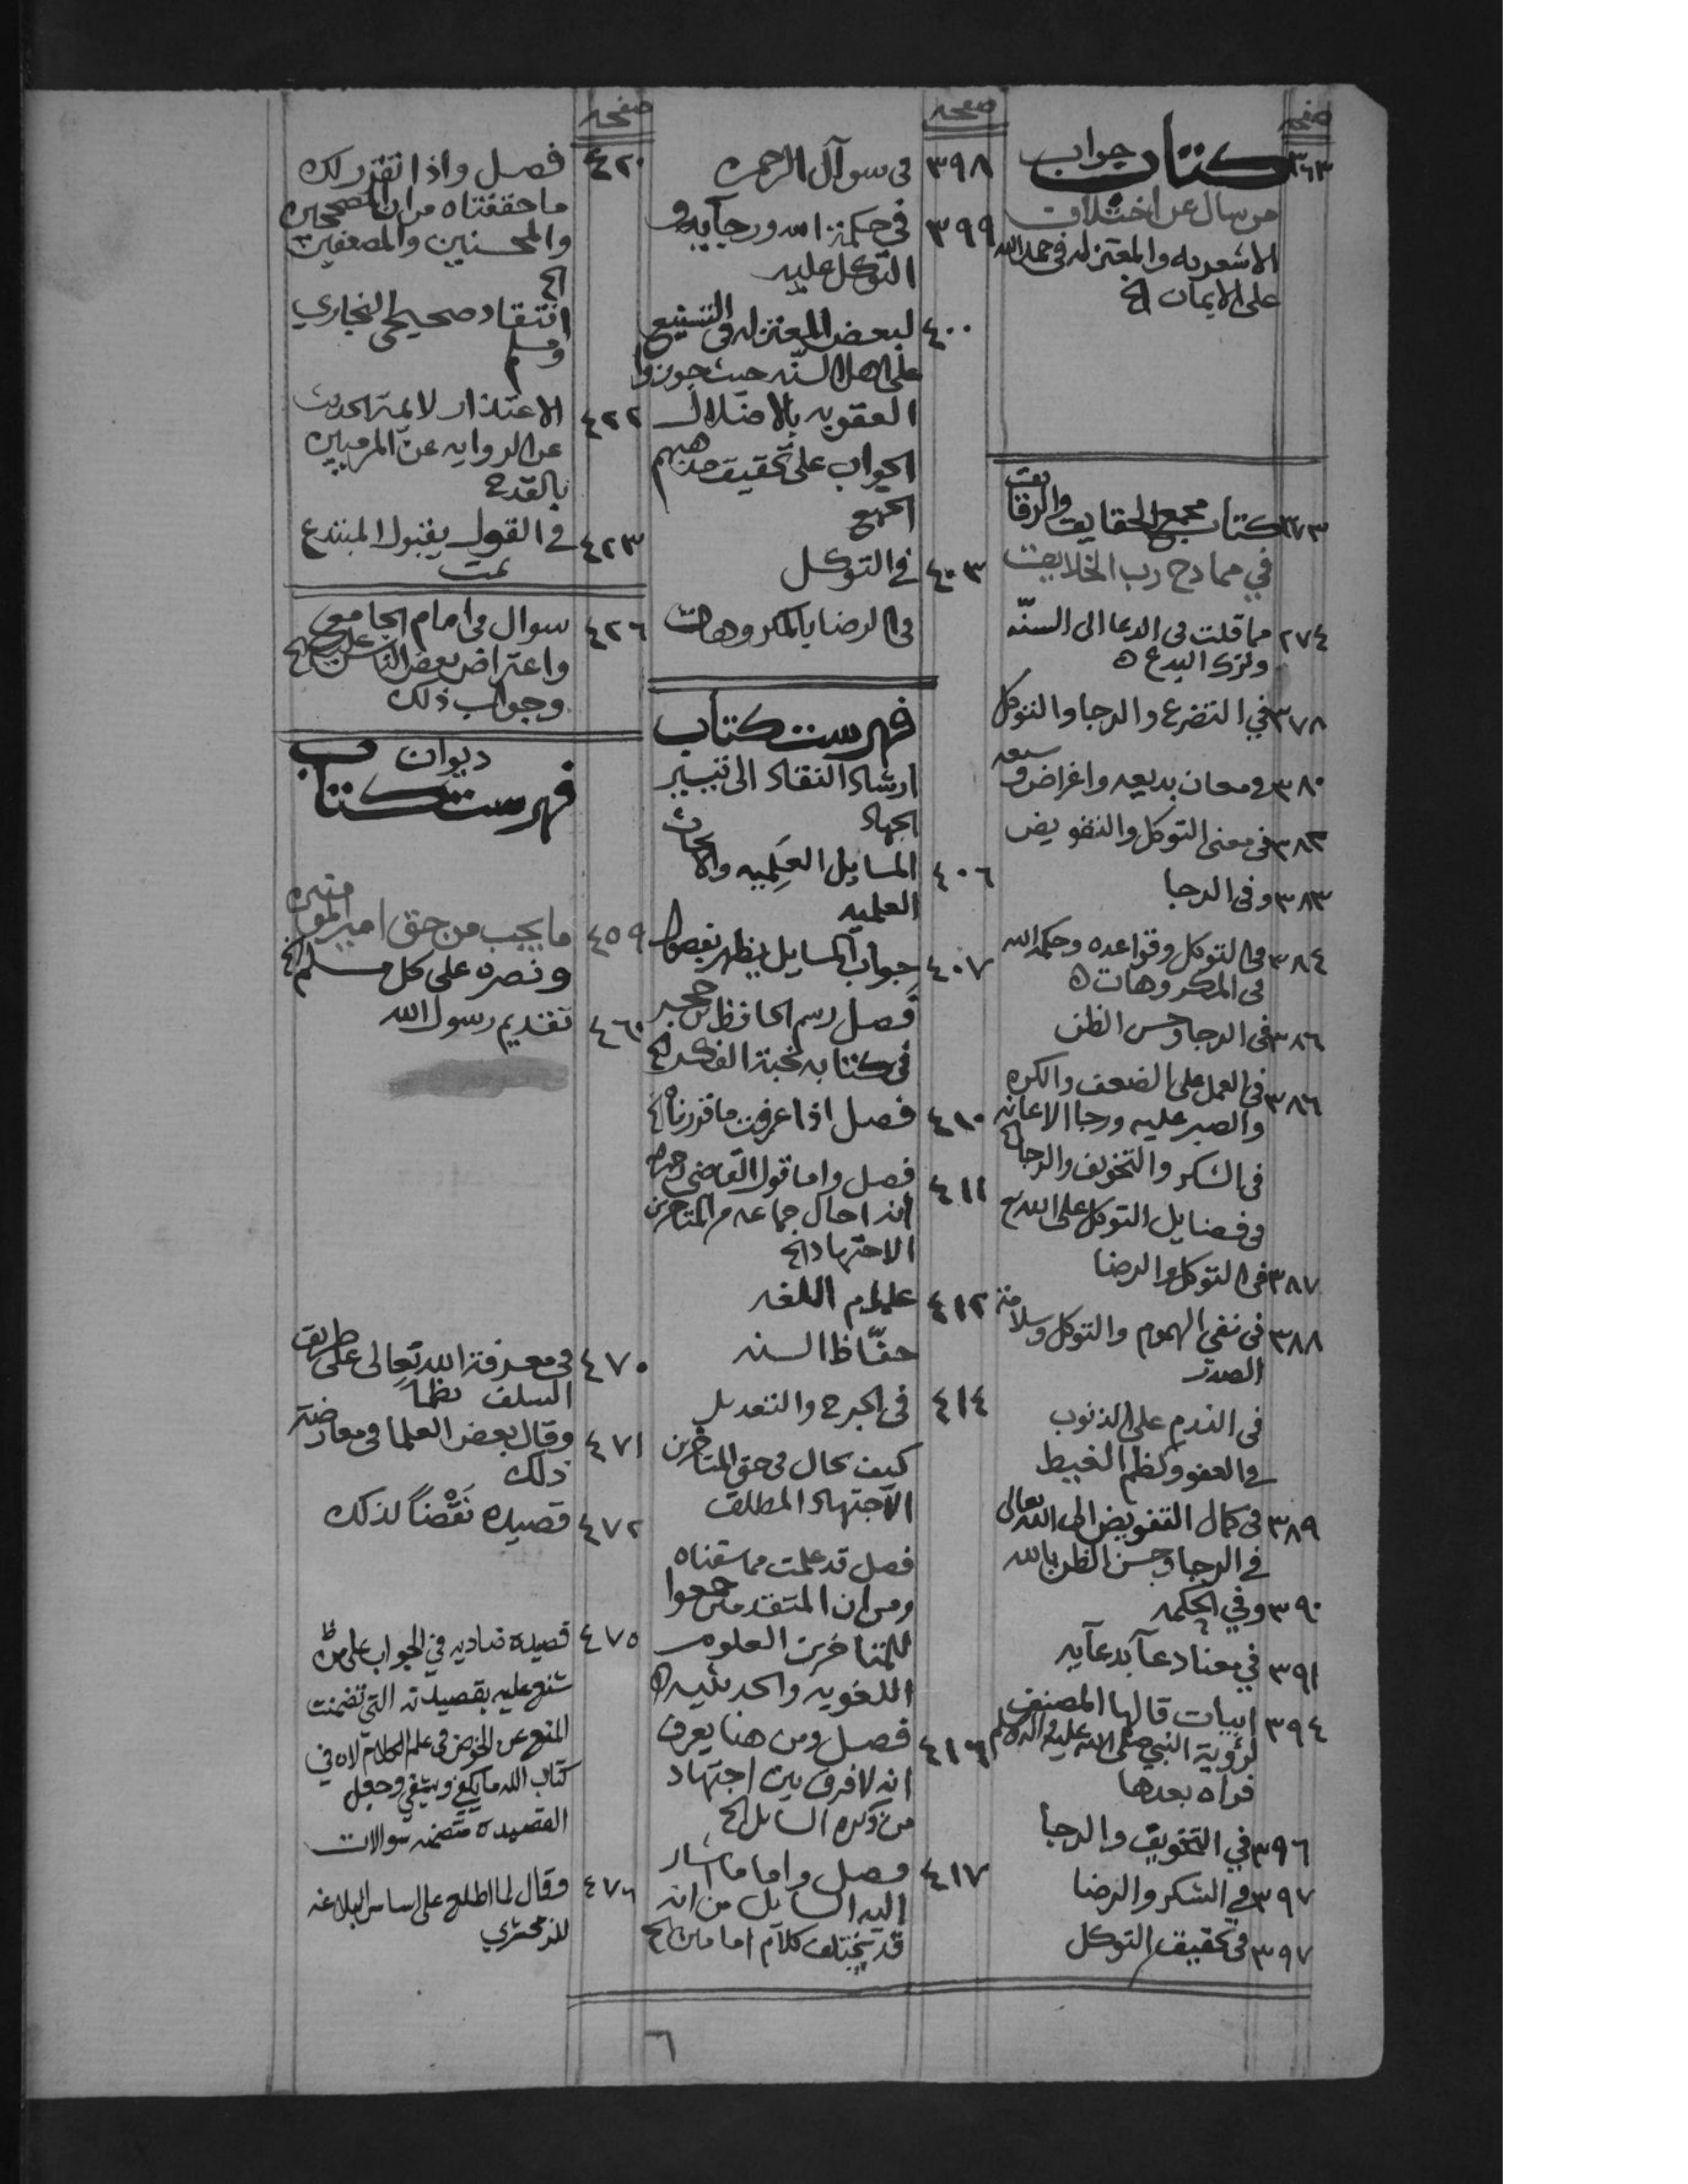 صفحه
٣٦٣ كتاب جواب
من سال عن اختلاف
الاشعريه والمعتزله في حمد الله
على الايمان الخ
٣٧٣ كتاب مجمع الحقايق والرقايق
في ممادح رب الخلايق
٢٧٤ مما قلت في الدعا الى السنّه
وترك البدع ه
٣٧٨ في التضرع والرجا والتوكل
٣٨٠ في معان بديعه واغراض
٣٨٢ في معنى التوكل والتفويض
٣٨٣ وفي الرجا
٣٨٤ في التوكل وقواعده وحكمة الله
في المكروهات ه
٣٨٦ في الرجا وحسن الظن
٣٨٦ في العمل على الضعف والكره
والصبر عليه ورجا الاعانه
في الشكر والتخويف والرجا الخ
في فضايل التوكل على الله تع
٣٨٧ في التوكل والرضا
٣٨٨ في نفي الهموم والتوكل وسلامة
الصدر
في الندم على الذنوب
في العفو وكظم الغيظ
٣٨٩ في كمال التفويض الى الله تعالى
في الرجا وحسن الظن بالله
٣٩٠ وفي الحكمه
٣٩١ في معنا دعآ بدعآيه
٣٩٤ ابيات قالها المصنف
لرؤية النبي صلى الله عليه واله وسلم
فراه بعدها
٣٩٦ في التخويف والرجا
٣٩٧ في الشكر والرضا
٣٩٧ في تحقيق التوكل
صفحه
٣٩٨ في سوآل الرحمه
٣٩٩ في حكمة الله ورجآيه و
التوكل عليه
٤٠٠ لبعض المعتزله في التشنيع
على اهل السنّه حيث جوزوا
العقوبه بالاضلال
الجواب على تحقيق مذهبهم
الجميع
٤٠٣ في التوكل
في الرضا بالمكروهات
فهرست كتاب
ارشاد النقاد الى تيسير
الجهاد
٤٠٦ المسايل العلميه والابحاث
العلميه
٤٠٧ جواب المسايل يظهر بفصول
فصل رسم الحافظ بن حجر
في كتابه نخبة الفكر الخ
٤١٠ فصل اذا عرفت ما قررناه الخ
٤١١ فصل واما قول القاضي
انه احال جماعه من المتاخرين
الاجتهاد الخ
٤١٢ علوم اللغه
حفّاظ السنه
٤١٤ في الجرح والتعديل
كيف يحال في حق المتاخرين
الاجتهاد المطلق
فصل قد علمت مما سقناه
ومن ان المتقدمين جمعوا
للمتاخرين العلوم
اللغويه والحديثيه ه
٤١٦ فصل ومن هنا يعرف
انه لا فرق بين اجتهاد
من ذكره السايل الخ
٤١٧ فصل واما ما اشار
اليه السايل من انه
قد يختلف كلام امامين الخ
صفحه
٤٢٠ فصل واذا تقرر لك
ما حققناه من ان المصححين
والمحسنين والمضعفين
الخ
انتقاد صحيحي البخاري
ومسلم
٤٢٢ الاعتذار لايمة الحديث
عن الروايه عن المرميين
بالقدح
٤٢٣ في القول بقبول المبتدع
تمت
٤٢٦ سوال في امام الجامع
واعتراض بعض الناس عليه الخ
وجواب ذلك
ديوان
فهرست كتاب
٤٥٩ ما يجب من حق امير المومنين
ونصره على كل مسلم الخ
٤٦٠ تقديم رسول الله
٤٧٠ في معرفة الله تعالى على طريق
السلف نظماً
٤٧١ وقال بعض العلما في معارضة
ذلك
٤٧٢ قصيده نَقْضاً لذلك
٤٧٥ قصيده في الجواب على من
شنع عليه بقصيدته التي تضمنت
المنع عن الخوض في علم الكلام لان في
كتاب الله ما يكفي ويشفي وجعل
القصيده متضمنه سوالات
٤٧٦ وقال لما اطلع على اساس البلاغه
للزمخشري
٦